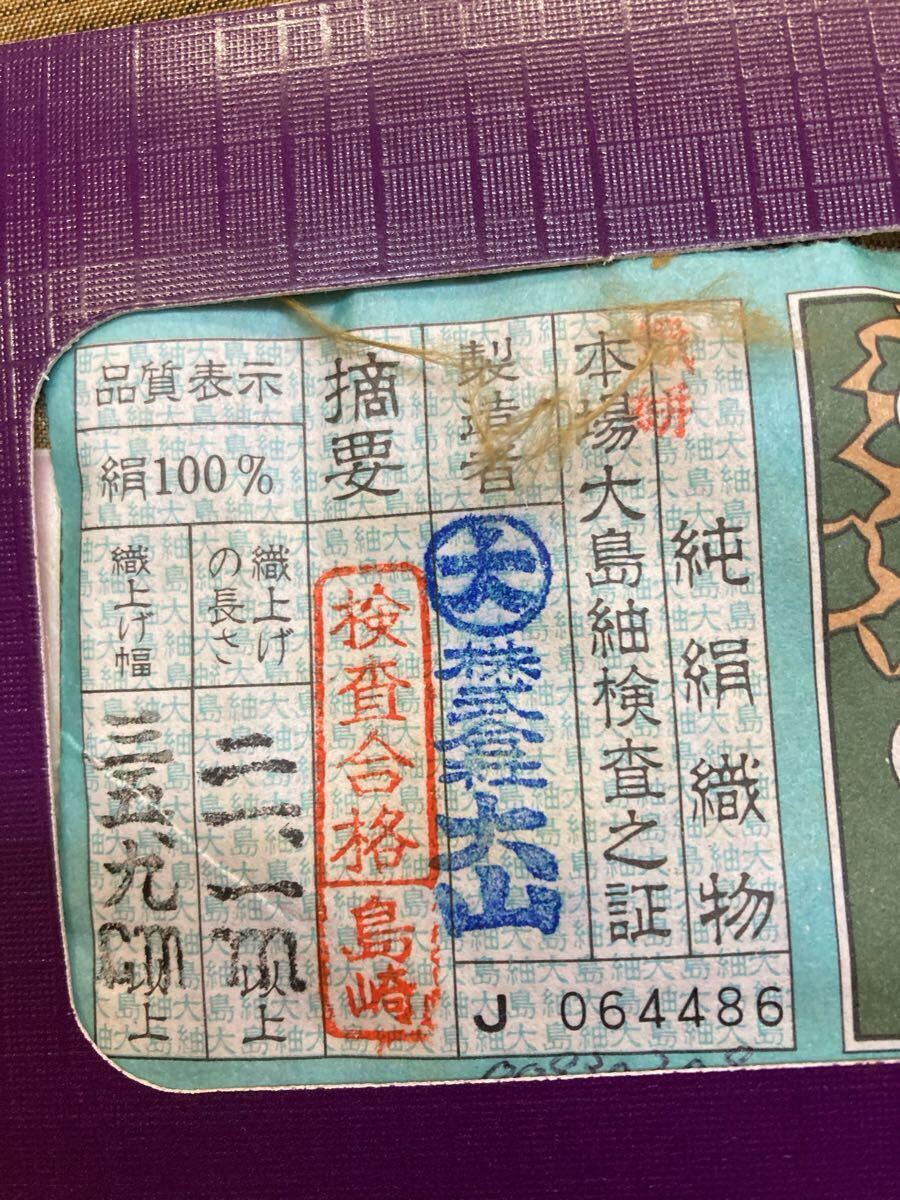 機絣
純絹織物
本場大島紬検査之証
J 064486
製造者
大
株式会社大山
摘要
検査合格
島崎
品質表示
絹100%
織上げ
の長さ
二二、一m以上
織上げ幅
三五、九cm以上